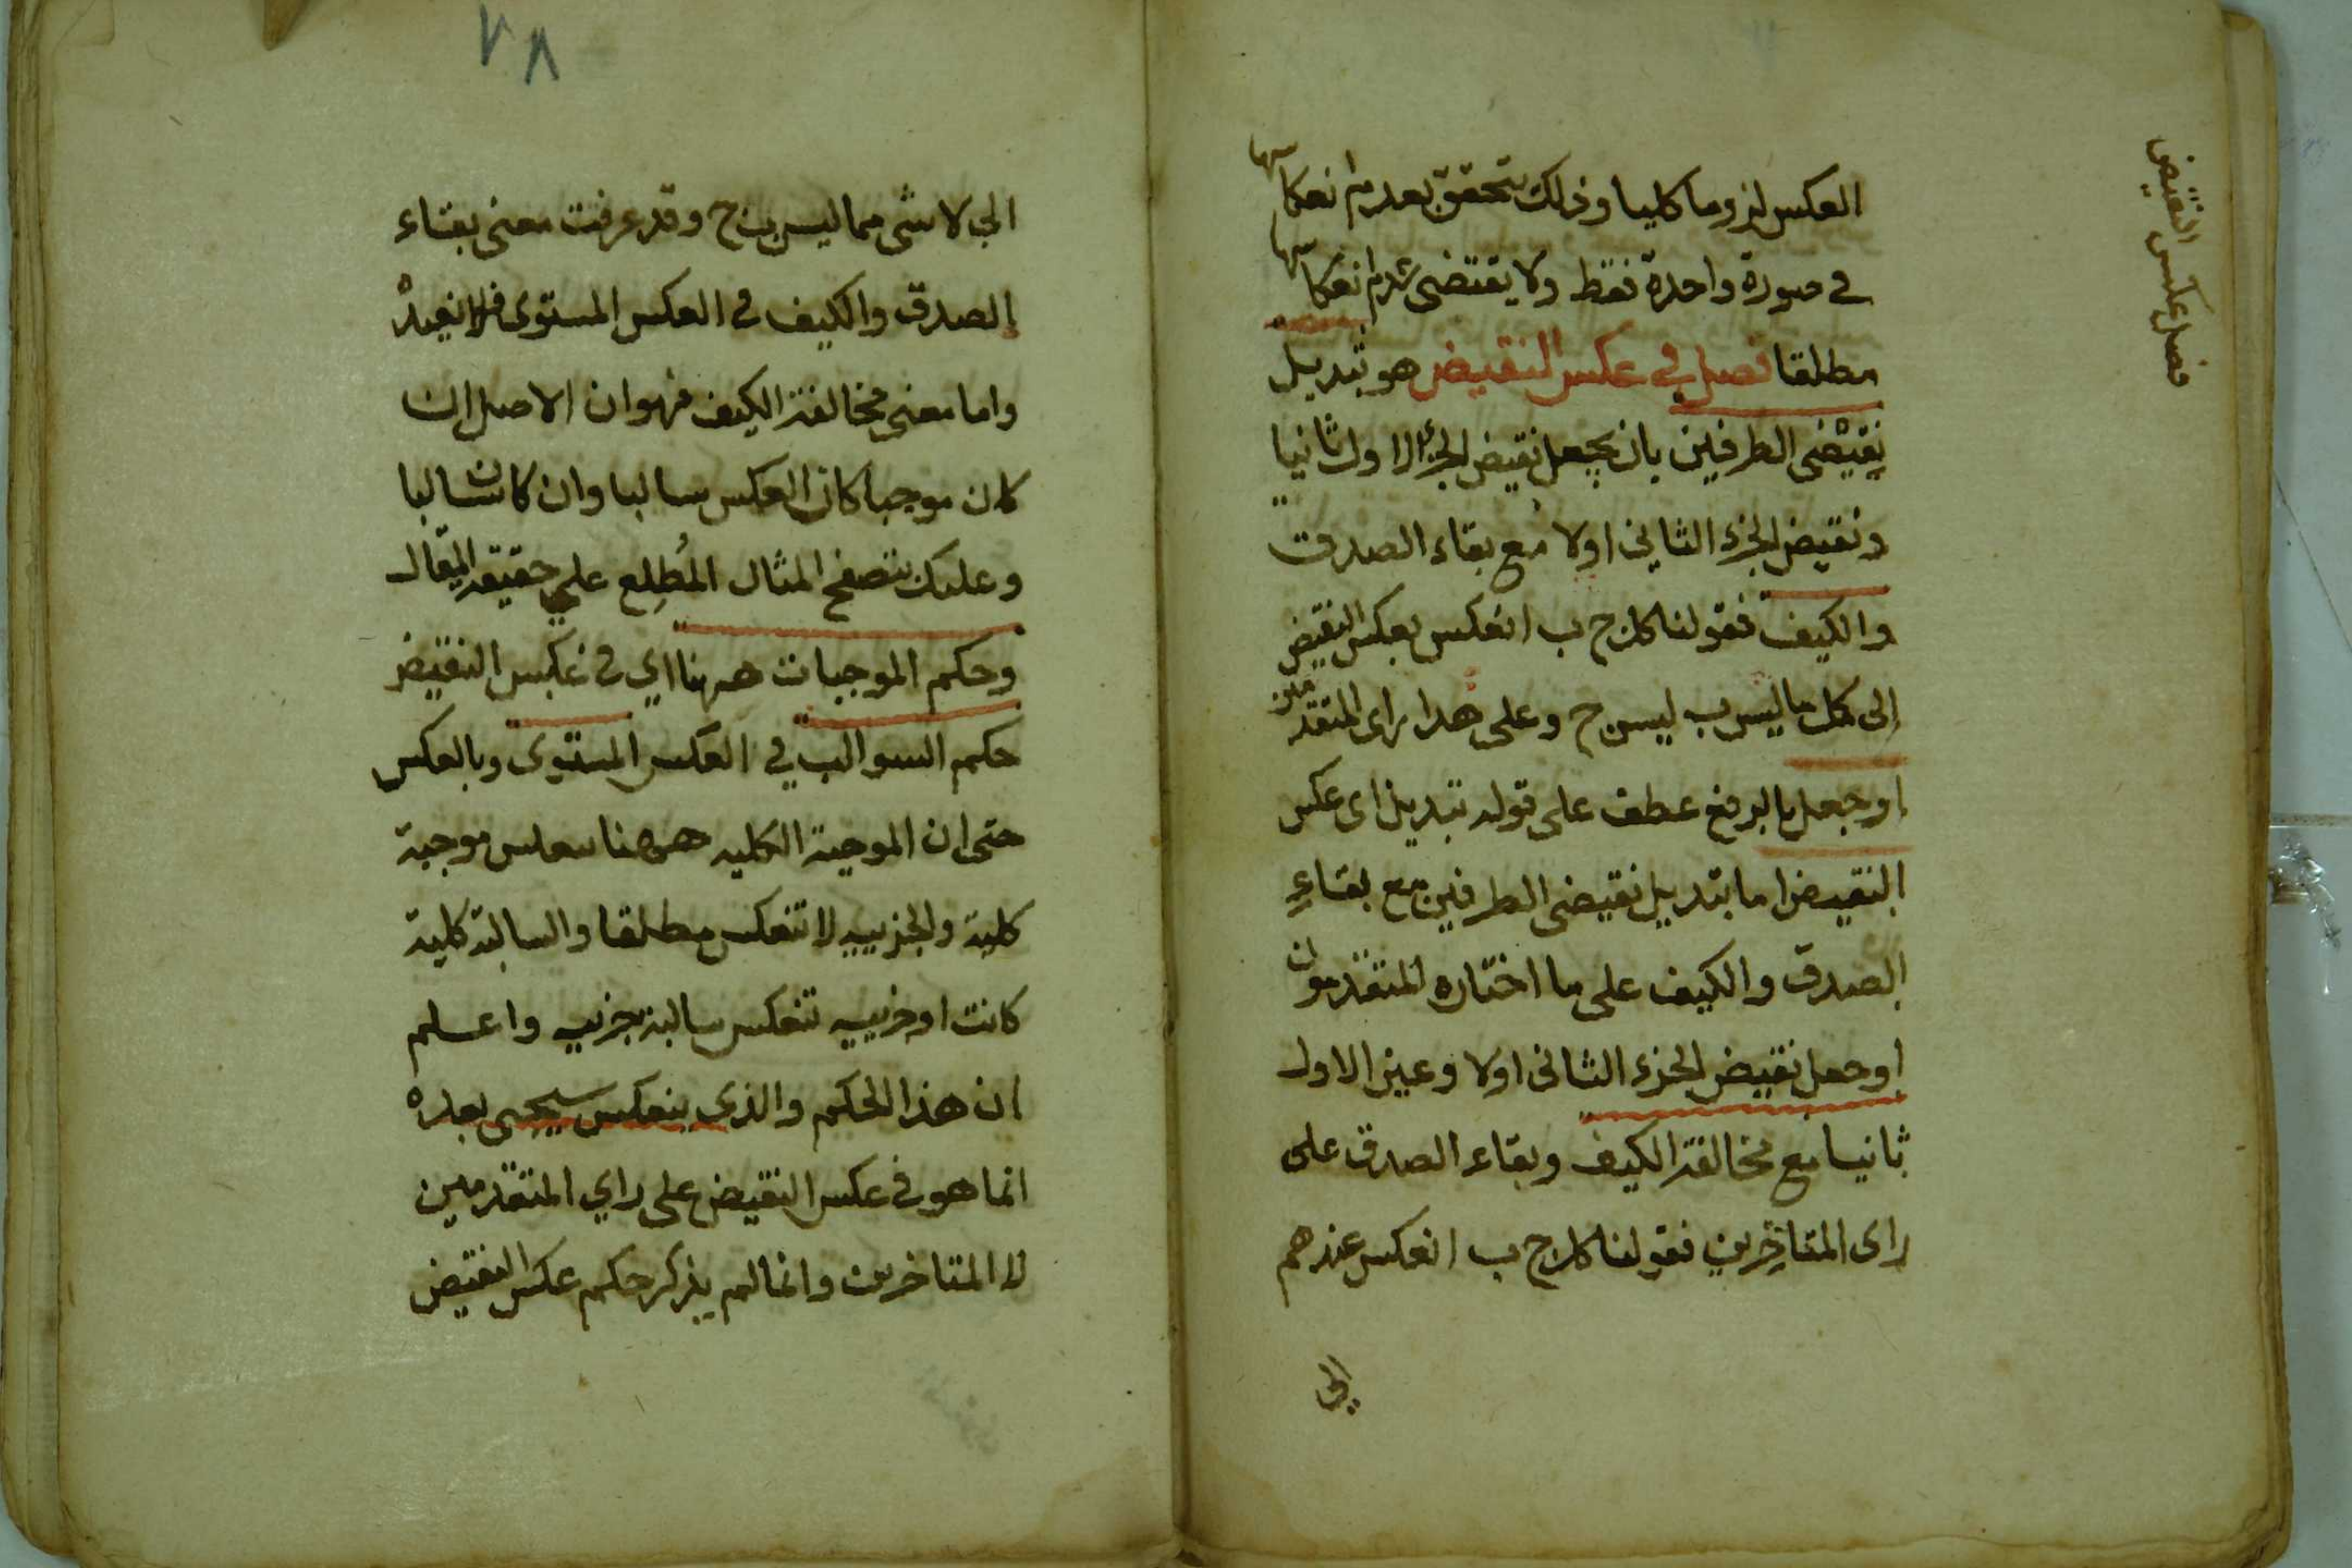 فصل عكس النقيض
العكس لزوما كليا وذلك يتحقق بعدم انعكاسها
في صورة واحدة فقط ولا يقتضى عدم انعكاسها
مطلقا فصل في عكس النقيض هو تبديل
نقيضى الطرفين بان يجعل نقيض الجزء الاول ثانيا
ونقيض الجزء الثاني اولا مع بقاء الصدق
والكيف فقولنا كل ج ب انعكس بعكس النقيض
الى كل ما ليس ب ليس ج وعلى هذا راى المتقدمين
او جعل بالرفع عطف على قوله تبديل اى عكس
النقيض اما تبديل نقيضى الطرفين مع بقاء
الصدق والكيف على ما اختاره المتقدمون
او جعل نقيض الجزء الثانى اولا وعين الاول
ثانيا مع مخالفة الكيف وبقاء الصدق على
راى المتاخرين فقولنا كل ج ب انعكس عندهم
الى
٢٨
الى لا شى مما ليس ب ج وقد عرفت معنى بقاء
الصدق والكيف في العكس المستوى فلا نعيده
واما معنى مخالفة الكيف فهو ان الاصل ان
كان موجبا كان العكس سالبا وان كان سالبا
وعليك بتصفح المثال المُطلِع على حقيقة المقال
وحكم الموجبات ههنا اي في عكس النقيض
حكم السوالب في العكس المستوى وبالعكس
حتى ان الموجبة الكليه ههنا تنعكس موجبة
كلية والجزييه لا تنعكس مطلقا والسالبة كلية
كانت او جزييه تنعكس سالبة جزييه واعلم
ان هذا الحكم والذى ينعكس سيجى بعده
انما هو في عكس النقيض على راي المتقدمين
لا المتاخرين وانما لم يذكر حكم عكس النقيض